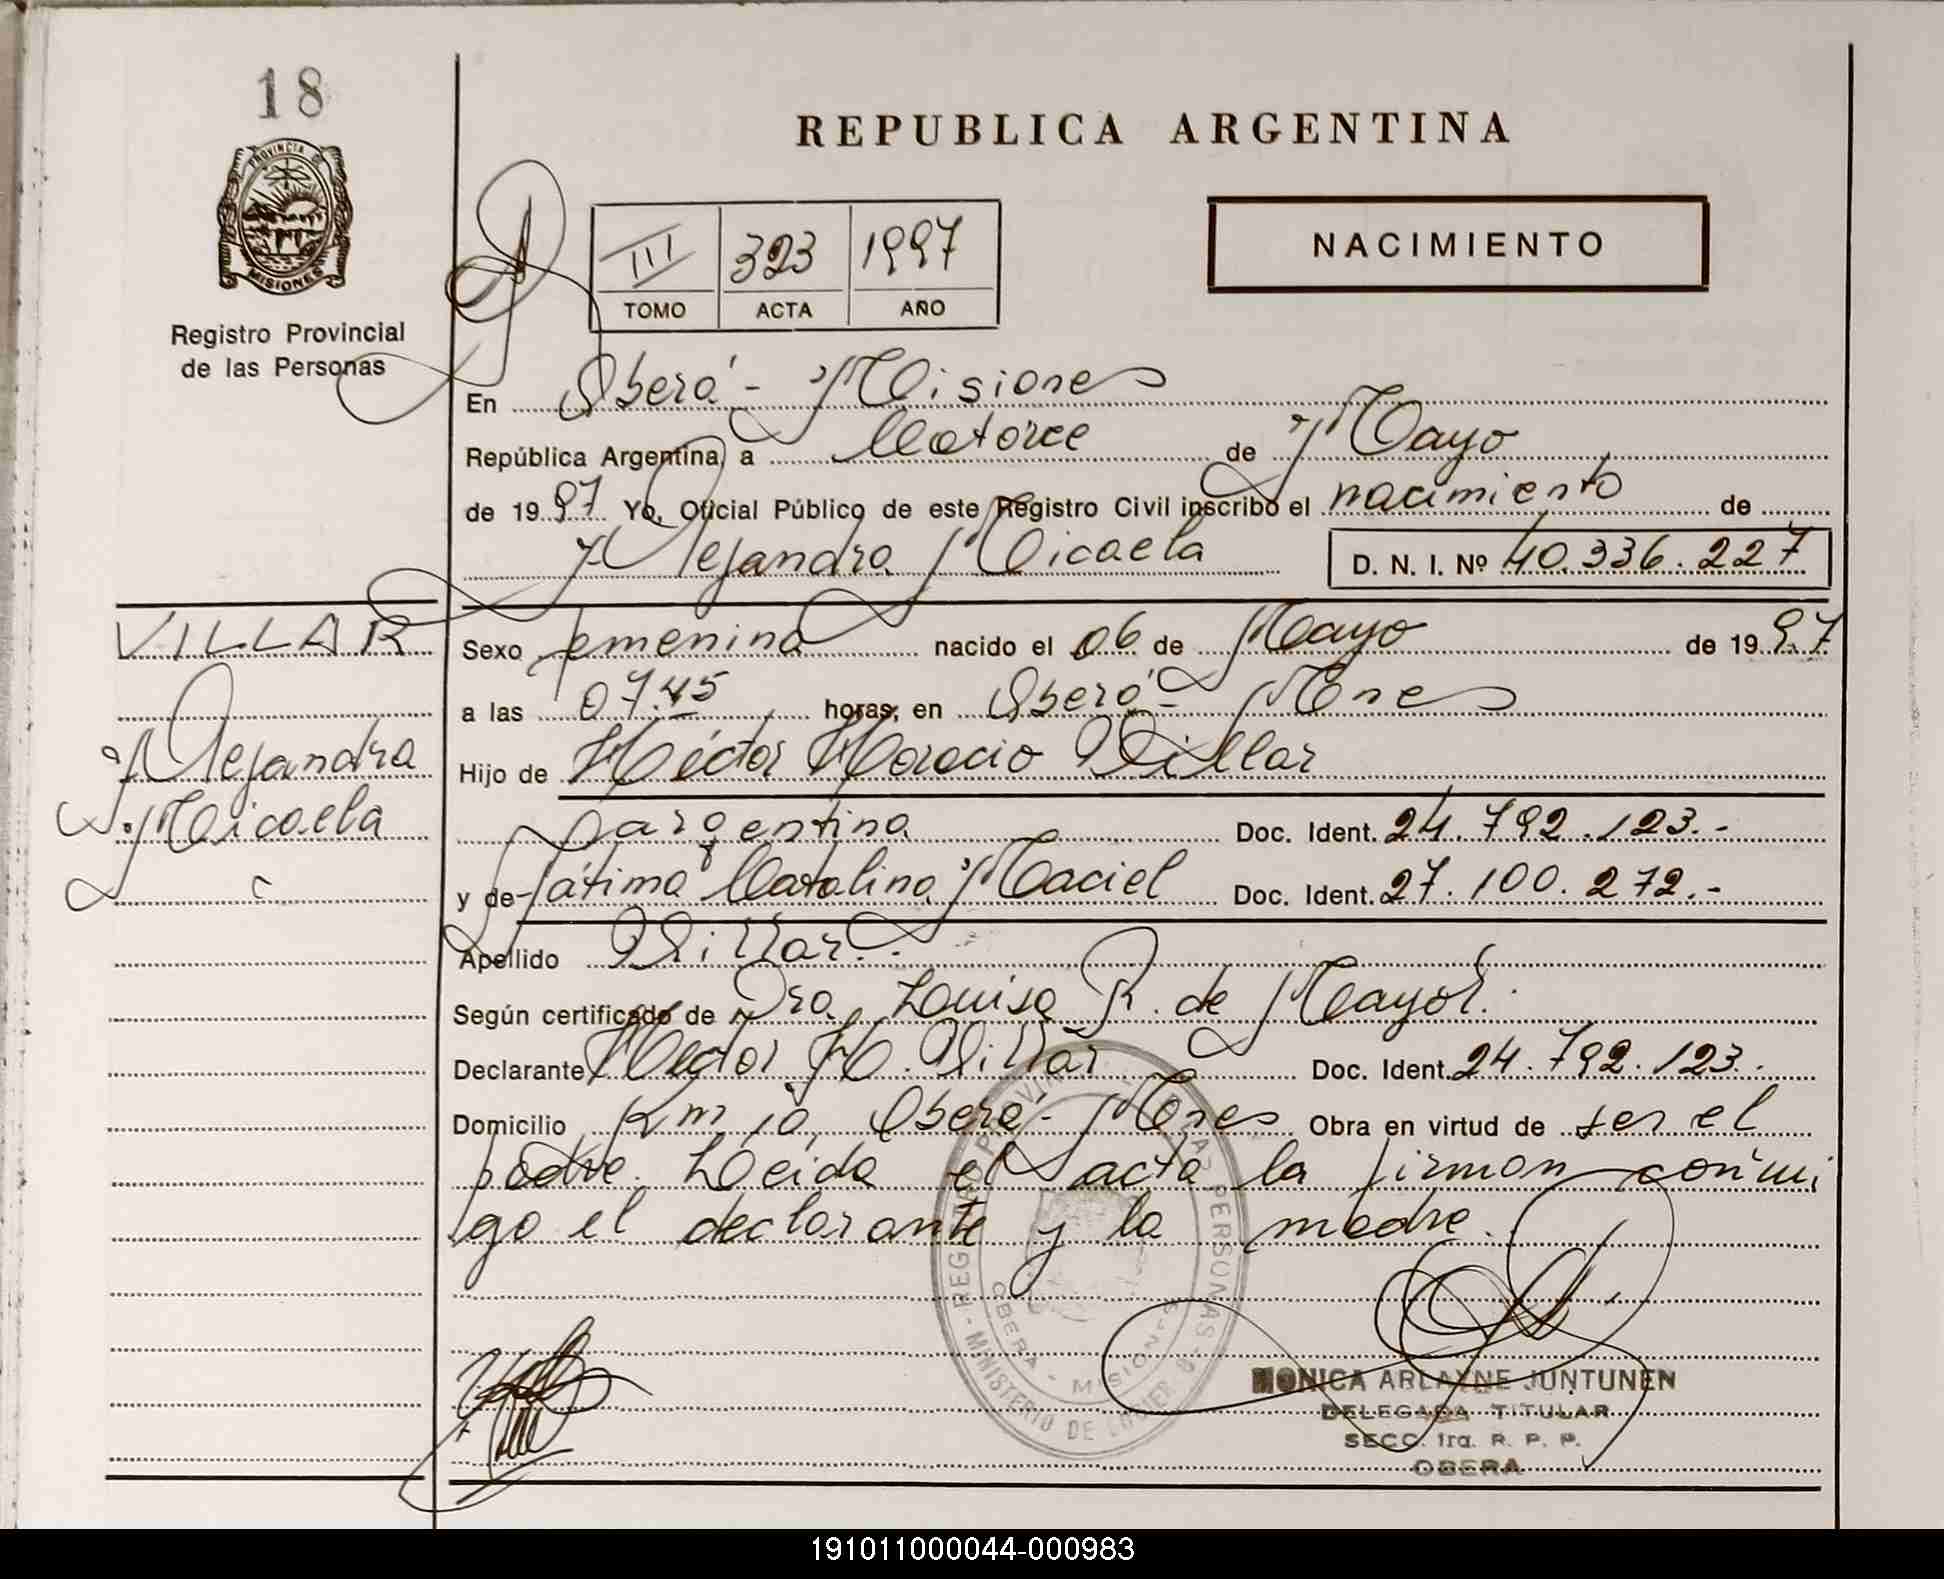 18
PROVINCIA DE
MISIONES
Registro Provincial
de las Personas
REPUBLICA ARGENTINA
III 323 1997
TOMO ACTA AÑO
NACIMIENTO
En Oberá - Misiones
República Argentina, a Catorce de Mayo
de 1997 Yo, Oficial Público de este Registro Civil inscribo el nacimiento de
Alejandra Micaela D. N. I. Nº 40.336.227
VILLAR
Alejandra
Micaela
Sexo femenino nacido el 06 de Mayo de 1997
a las 07.45 horas, en Oberá - Mnes
Hijo de Héctor Horacio Villar
argentina Doc. Ident. 24.792.123.-
y de Fátima Catalina Maciel Doc. Ident. 27.100.272.-
Apellido Villar.-
Según certificado de Dra. Louisa R. de Mayol.
Declarante Héctor H. Villar Doc. Ident. 24.792.123.
Domicilio Km 10, Oberá - Mnes Obra en virtud de ser el
padre. Leida el acta la firman conmi
go el declarante y la madre.
MONICA ARLAYNE JUNTUNEN
DELEGADA TITULAR
SECC. 1ra. R. P. P.
OBERA
OBERA - MISIONES
191011000044-000983